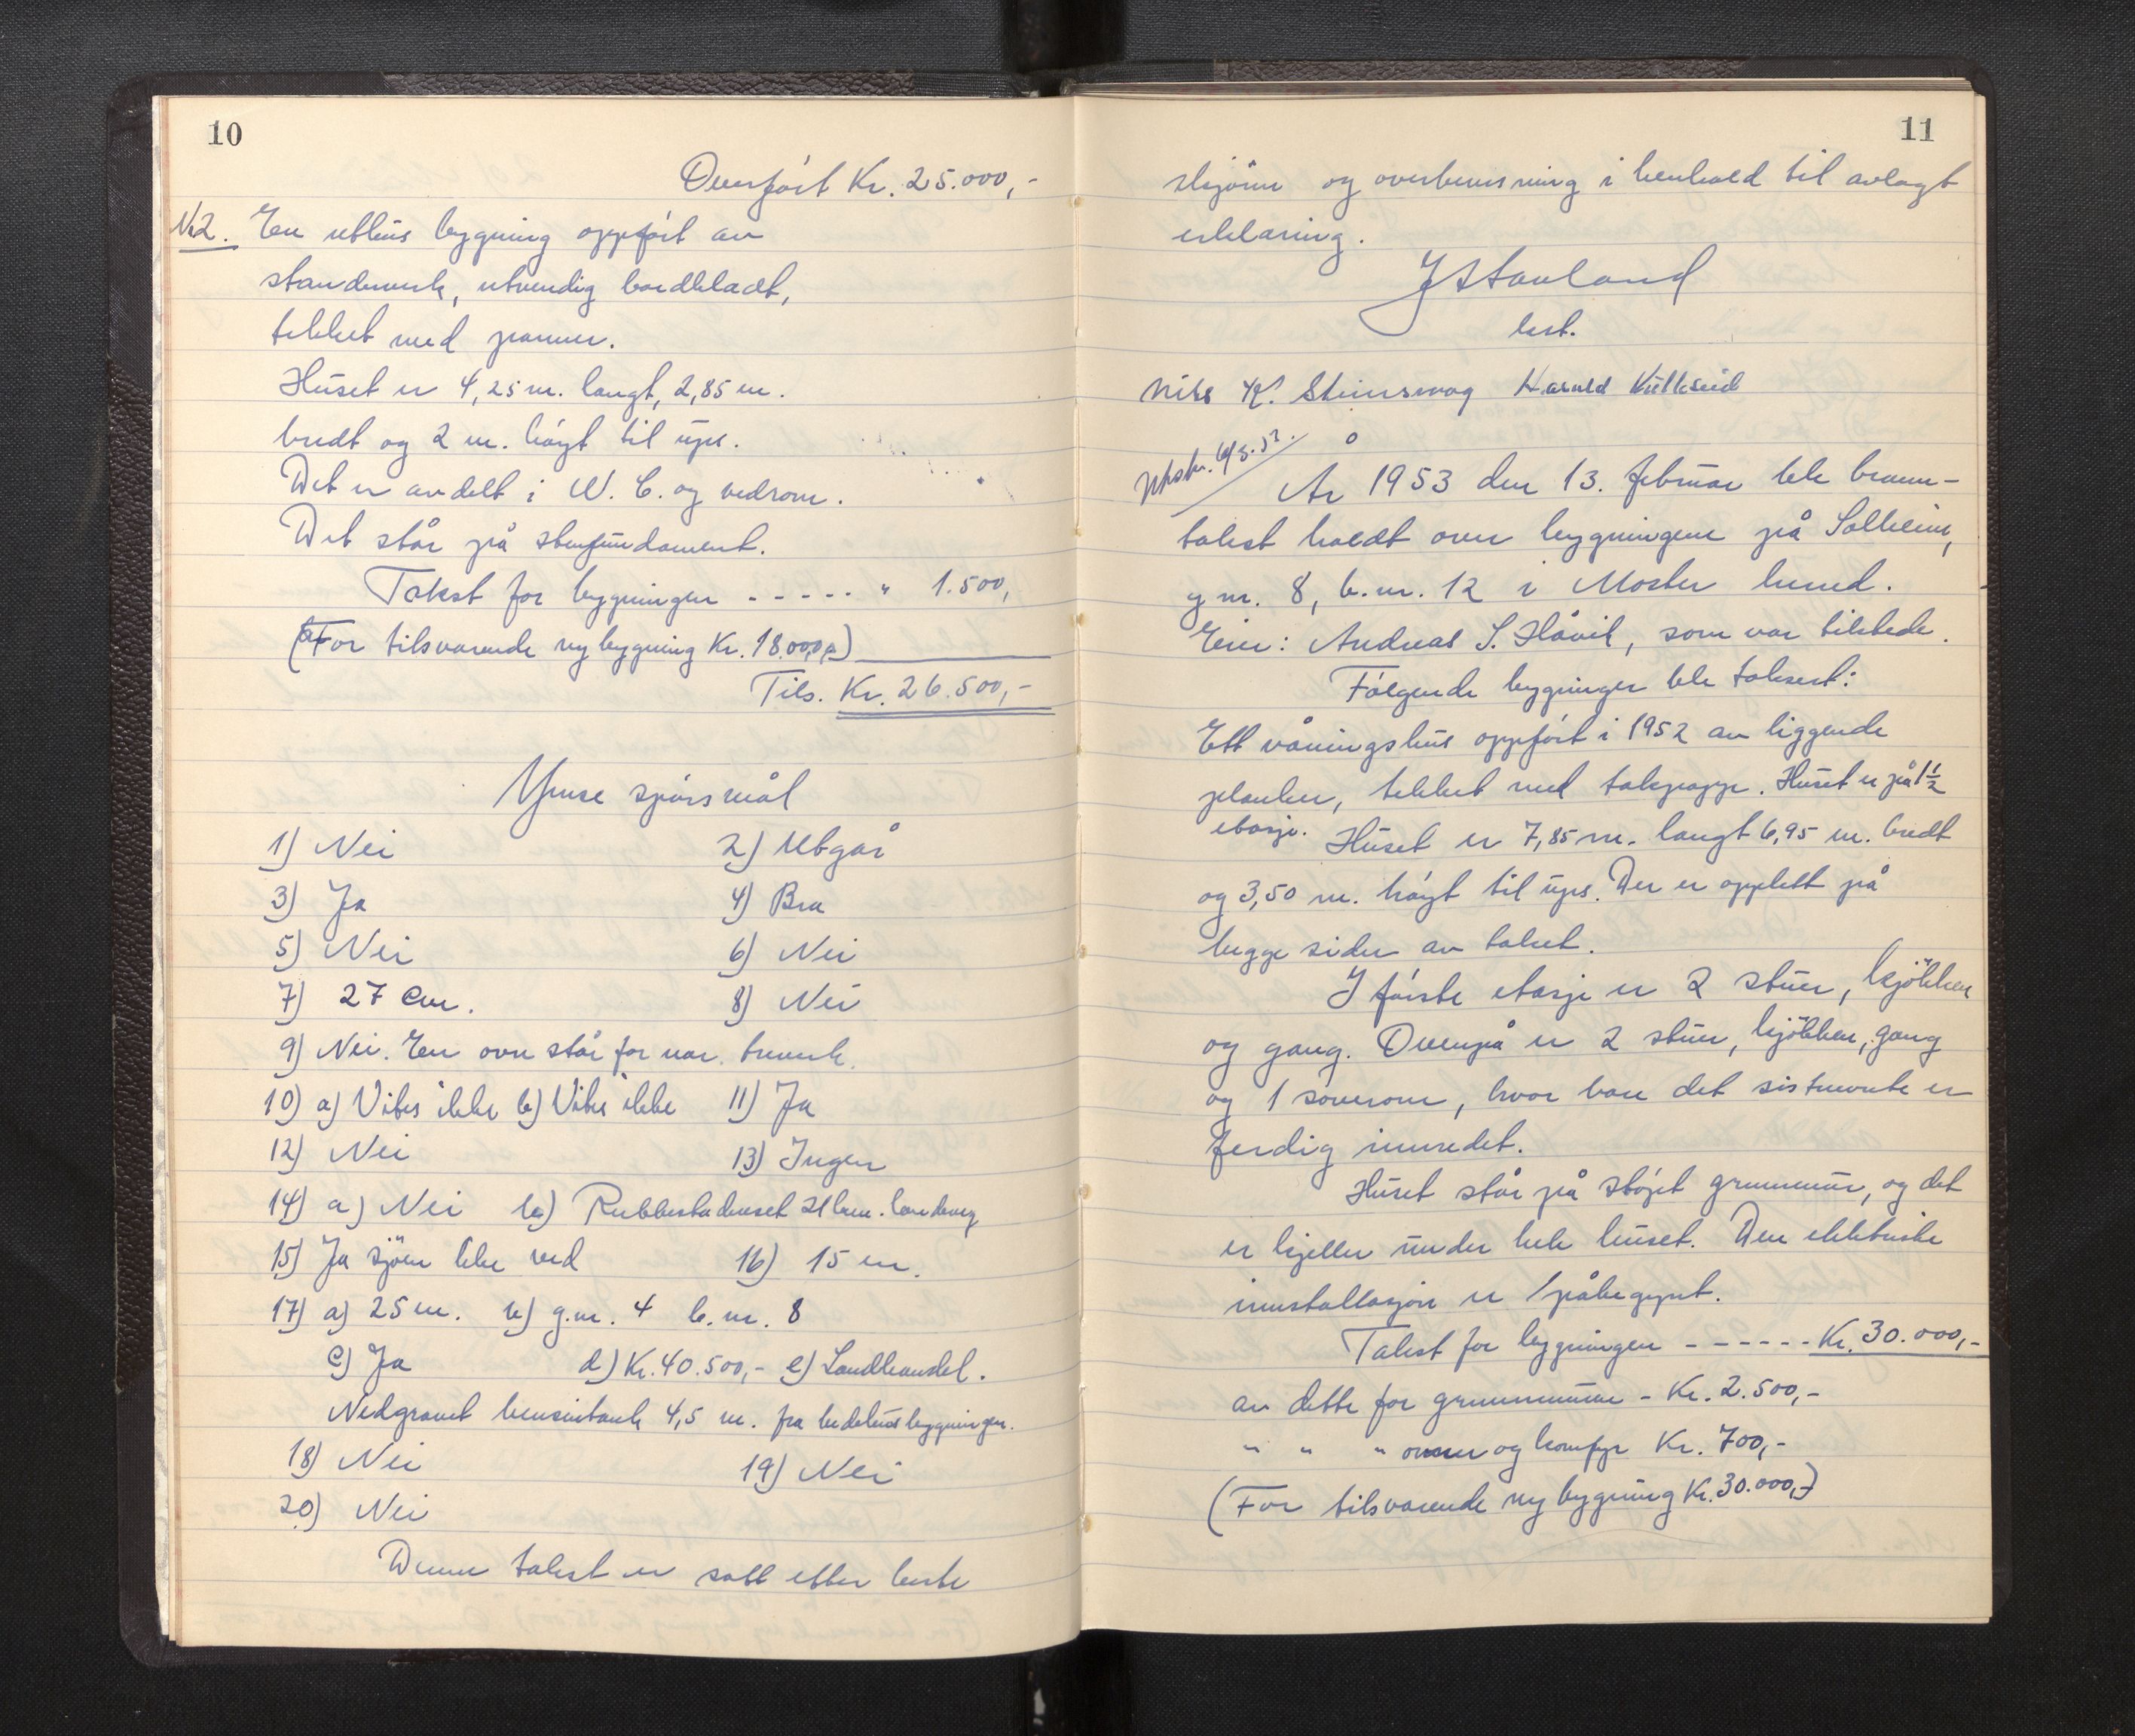 10
Overført Kr. 25.000,-
No2. En uthus bygning oppført av
standverk, utvendig bordkladt,
tekket med panner.
Huset er 4,25 m. langt, 2,85 m.
bredt og 2 m. høyt til ups.
Det er avdelt i W. C. og vedrom.
Det står på stenfundament.
Takst for bygningen - - - - - " 1.500,
(For tilsvarende ny bygning Kr. 18.000,-)
Tils. Kr. 26.500,-
Ymse spørsmål
1) Nei 2) Utgår
3) Ja 4) Bra
5) Nei 6) Nei
7) 27 cm. 8) Nei
9) Nei. En ovn står for nær treverk.
10) a) Vites ikke b) Vites ikke 11) Ja
12) Nei 13) Ingen
14) a) Nei b) Rubbestadneset 21 km. landeveg
15) Ja sjöen like ved 16) 15 m.
17) a) 25 m. b) g.nr. 4 b.nr. 8
c) Ja d) Kr. 40.500,- e) Landhandel.
Nedgravet bensintank 4,5 m. fra bedehusbygningen.
18) Nei 19) Nei
20) Nei
Denne takst er satt etter beste
11
skjönn og overbevisning i henhold til avlagt
erklæring.
J Stavland
lest.
Nils K. Steinsvåg Harald Kulleseid
Utskr. 6/3.53.
År 1953 den 13. februar ble brann-
takst holdt over bygningene på Solheim,
g nr. 8, b.nr. 12 i Moster herred.
Eier: Andreas S. Håvik, som var tilstede.
Følgende bygninger ble taksert:
Ett våningshus oppført i 1952 av liggende
planker, tekket med takpapp. Huset er på 1 1/2
etasje. Huset er 7,85 m. langt 6,95 m. bredt
og 3,50 m. høyt til ups. Der er opplett på
begge sider av taket.
I første etasje er 2 stuer, kjökken
og gang. Ovenpå er 2 stuer, kjökken, gang
og 1 soverom, hvor bare det sistnevnte er
ferdig innredet.
Huset står på støpt grunnmur, og det
er kjeller under hele huset. Den elektriske
innstallasjon er påbegynt.
Takst for bygningen - - - - - - Kr. 30.000,-
av dette for grunnmuren - Kr. 2.500,-
" " " ovner og komfyr Kr. 700,-
(For tilsvarende ny bygning Kr. 30.000,-)